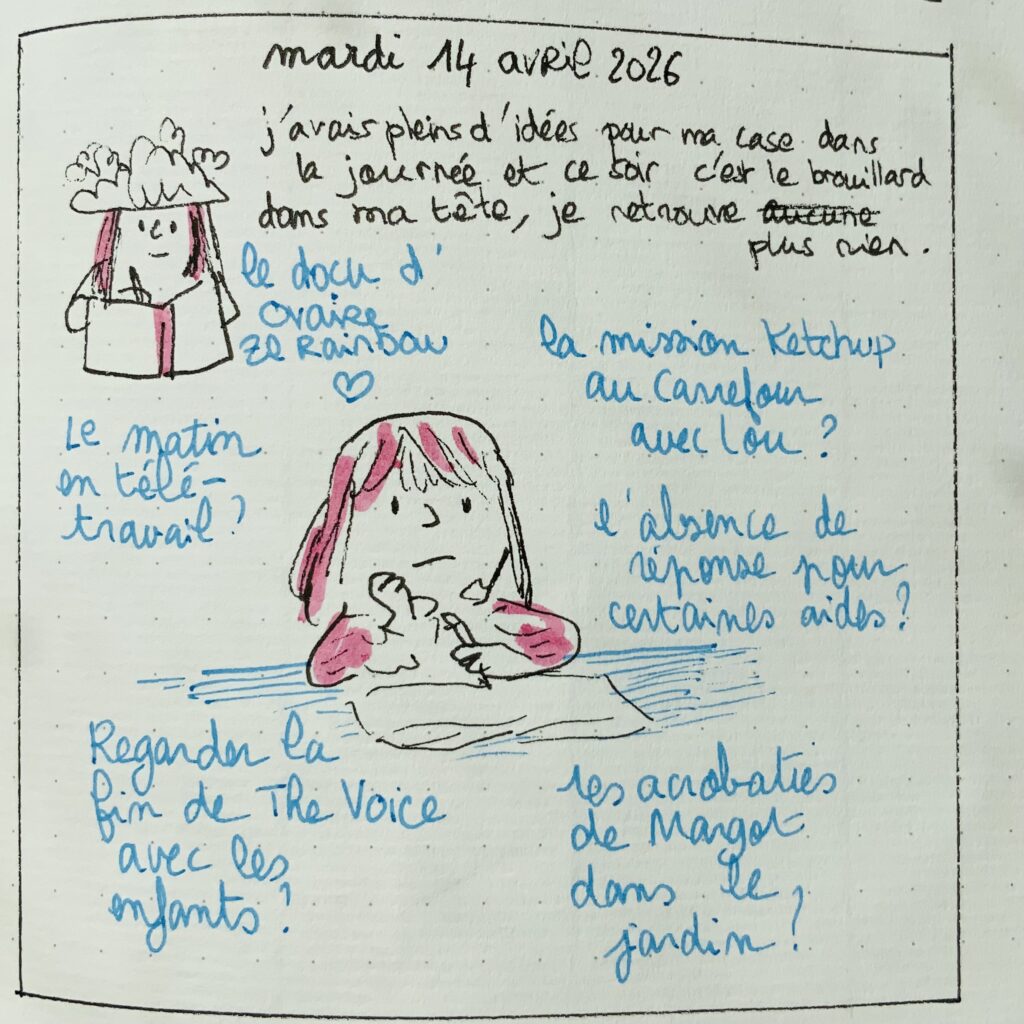 mardi 14 avril 2026
j'avais pleins d'idées pour ma case dans
la journée et ce soir c'est le brouillard
dans ma tête, je retrouve aucune
plus rien.
le docu d'
Ovaire
ze Rainbow
la mission Ketchup
au Carrefour
avec Lou ?
Le matin
en télé-
travail ?
l'absence de
réponse pour
certaines aides ?
Regarder la
fin de The Voice
avec les
enfants ?
les acrobaties
de Margot
dans le
jardin ?